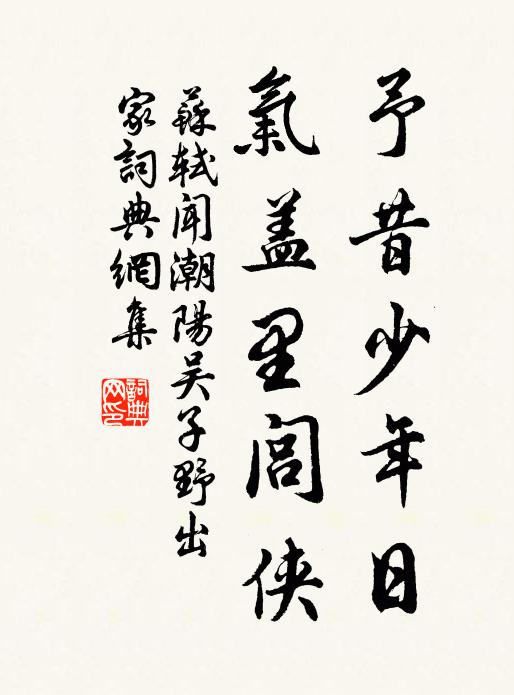 予昔少年日
氣盖里閭俠
蘇軾聞潮陽吴子野出
家詞典網集
詞典
网印